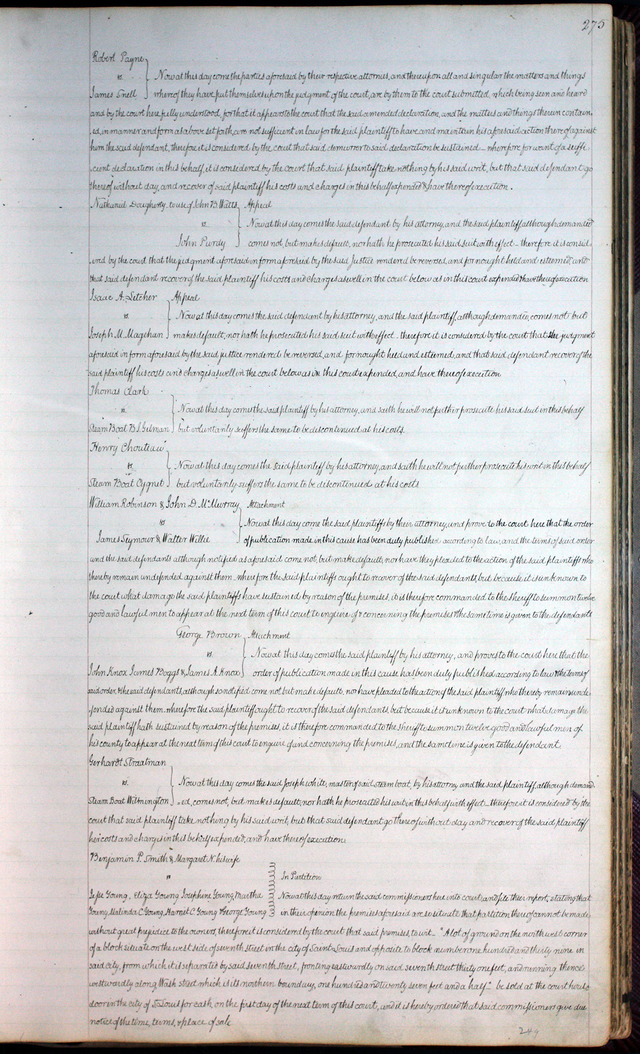 275
Robert Payne
vs.
James Snell
Now at this day come the parties aforesaid by their respective attornies, and thereupon all and singular the matters and things
whereof they have put themselves upon the judgment of the court, are by them to the court submitted, which being seen and heard
and by the court here fully understood, for that it appears to the court that the said amended declaration, and the matters and things therein contain-
ed, in manner and form as above set forth, are not sufficient in law for the said plaintiff to have and maintain his aforesaid action thereof against
him the said defendant, therefore it is considered by the court that said demurrer to said declaration be sustained – wherefore for want of a suffi-
cient declaration in this behalf, it is considered by the court that said plaintiff take nothing by his said writ, but that said defendant go
thereof without day, and recover of said plaintiff his costs and charges in this behalf expended & have thereof execution.
Nathaniel Dougherty, to use of John B Watts
vs
John Purdy
Appeal
Now at this day comes the said defendant by his attorney, and the said plaintiff, although demanded
comes not, but makes default, nor hath he prosecuted his said suit with effect – therefore it is consid-
ered by the court that the judgment aforesaid in form aforesaid by the said Justice rendered be reversed, and for nought held and esteemed, and
that said defendant recover of the said plaintiff his costs and charges as well in the court below as in this court expended & have thereof execution
Isaac A. Letcher
vs
Joseph M. Magehan
Appeal
Now at this day comes the said defendant by his attorney, and the said plaintiff, although demanded, comes not but
makes default, nor hath he prosecuted his said suit with effect – therefore it is considered by the court that the judgment
aforesaid in form aforesaid by the said justice rendered be reversed, and for nought held and esteemed, and that said defendant recover of the
said plaintiff his costs and charges as well in the court below as in this court expended, and have thereof execution
Thomas Clark
vs.
Steam Boat B. I. Gilman
Now at this day comes the said plaintiff by his attorney, and saith he will not further prosecute his said suit in this behalf
but voluntarily suffers the same to be discontinued at his costs.
Henry Chouteau
vs.
Steam Boat Cygnet
Now at this day comes the said plaintiff by his attorney, and saith he will not further prosecute his writ in this behalf
but voluntarily suffers the same to be discontinued at his costs
William Robinson & John D. McMurray
vs
James Seymour & Walter Willie
Attachment
Now at this day come the said plaintiffs by their attorney, and prove to the court here that the order
of publication made in this cause has been duly published according to law, and the terms of said order
and the said defendants although notified as aforesaid come not, but make default, nor have they pleaded to the action of the said plaintiffs who
thereby remain undefended against them. wherefore the said plaintiffs ought to recover of the said defendants, but because it is unknown to
the court what damage the said plaintiffs have sustained by reason of the premises, it is therefore commanded to the sheriff to summon twelve
good and lawful men to appear at the next term of this court, to enquire of & concerning the premises & the same time is given to the defendants
George Brown
vs
John Knox James Boggs & James A. Knox
Attachment
Now at this day comes the said plaintiff by his attorney, and proves to the court here that the
order of publication made in this cause has been duly published according to law & the terms of
said order & the said defendants, although so notified come not but make default, nor have pleaded to the action of the said plaintiff who thereby remains unde-
fended against them. wherefore the said plaintiff ought to recover of the said defendants, but because it is unknown to the court what damage the
said plaintiff hath sustained by reason of the premises, it is therefore commanded to the sheriff to summon twelve good and lawful men of
his county to appear at the next term of this court to enquire of and concerning the premises, and the same time is given to the defendent.
Gerhardt Straatman
vs.
Steam Boat Wilmington
Now at this day comes the said Joseph White, master of said steam boat, by his attorney and the said plaintiff although demand-
ed, comes not, but makes default; nor hath he prosecuted his writ in this behalf with effect. Therefore it is considered by the
court that said plaintiff take nothing by his said writ, but that said defendant go thereof without day and recover of the said plaintiff
her costs and charges in this behalf expended, and have thereof execution.
Benjamin P. Smith & Margaret N. his wife
vs
Lydie Young, Eliza Young Josephine Young Martha
Young, Malinda C Young, Harriet C. Young & George Young
In Partition
Now at this day return the said commissioners here into court, and file their report, stating that
in their opinion the premises aforesaid are so situate that partition thereof cannot be made
without great prejudice to the owners, therefore it is considered by the court that said premises, to wit – "A lot of ground on the north west corner
of a block situate on the west side of seventh street in the city of Saint Louis and opposite to block number one hundred and thirty nine in
said city, from which it is separated by said seventh street, fronting eastwardly on said seventh street thirty one feet, and running thence
westwardly along Wash street which is its northern boundary, one hundred and twenty seven feet and a half – be sold at the court house
door in the city of St Louis for cash, on the first day of the next term of this court, and it is hereby ordered that said commissioners give due
notice of the time, terms, & place of sale